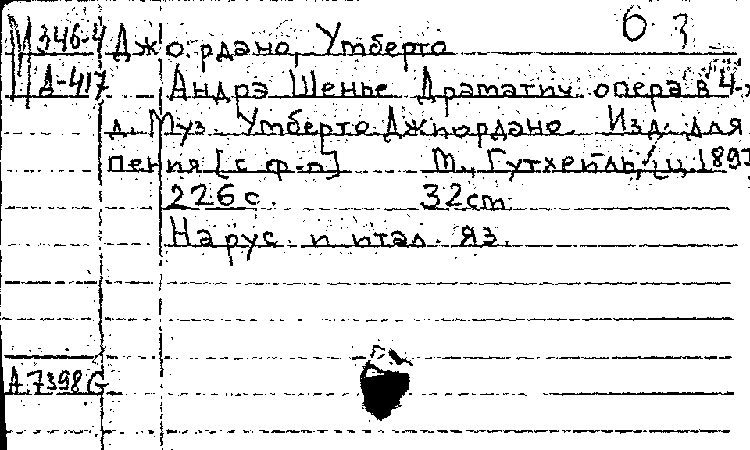 б 3
М 346-4 Джордано, Умберто
Д-417 Андрэ Шенье Драматич. опера в 4-х
д. Муз. Умберто Джиордано. Изд. для
пения [с ф-п] М., Гутхейль, ц. 1897
226 с. 32 cm.
На рус. и итал. яз.
А.7398 G